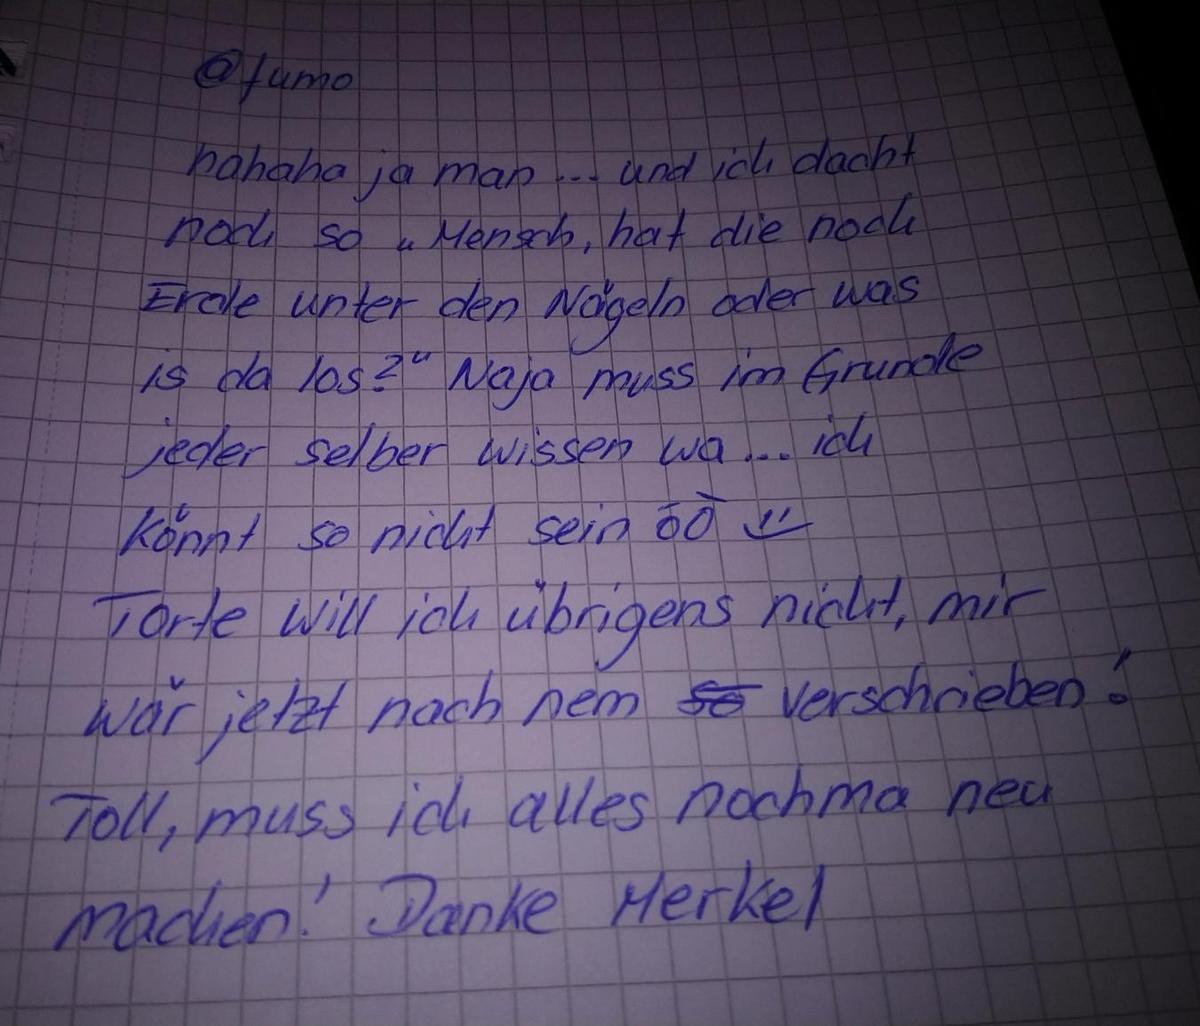 @fumo
hahaha ja man ... und ich dacht
noch so „Mensch, hat die noch
Erde unter den Nägeln oder was
is da los?“ Naja muss im Grunde
jeder selber wissen wa ... ich
könnt so nicht sein òó
Torte will ich übrigens nicht, mir
wär jetzt nach nem so verschrieben!
Toll, muss ich alles nochma neu
machen! Danke Merkel